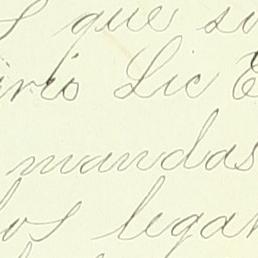 y que su
irio Lic E
mandas
los legar